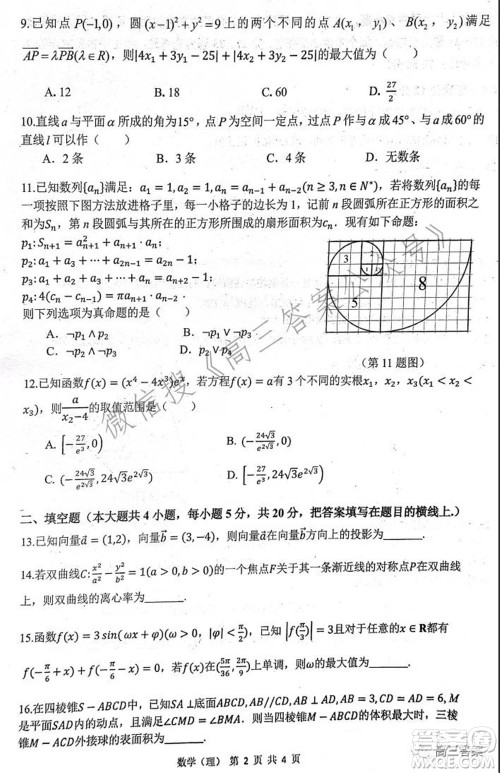 9.已知点P(-1,0)，圆(x-1)²+y²=9上的两个不同的点A(x₁，y₁)、B(x₂，y₂)满足
AP=λPB(λ∈R)，则|4x₁+3y₁-25|+|4x₂+3y₂-25|的最大值为（ ）
A. 12 B. 18 C. 60 D. 27/2
10.直线a与平面α所成的角为15°，点P为空间一定点，过点P作与α成45°、与a成60°的
直线l可以作（ ）
A. 2条 B. 3条 C. 4条 D. 无数条
11.已知数列{aₙ}满足：a₁=1,a₂=1,aₙ=aₙ₋₁+aₙ₋₂(n≥3,n∈N*)，若将数列{aₙ}的每
一项按照下图方法放进格子里，每一小格子的边长为1，记前n段圆弧所在的正方形的面积之
和为Sₙ，第n段圆弧与其所在的正方形所围成的扇形面积为cₙ．现有如下命题：
p₁:Sₙ₊₁=a²ₙ₊₁+aₙ₊₁·aₙ；
p₂:a₁+a₂+⋯+aₙ=aₙ₊₂-1；
p₃:a₁+a₂+a₃+⋯+aₙ=aₙ₊₁-1；
p₄:4(cₙ-cₙ₋₁)=πaₙ₊₁·aₙ₋₂．
则下列选项为真命题的是（ ）
A. ¬p₁∧p₂ B. ¬p₁∨¬p₃
C. ¬p₂∧¬p₃ D. p₂∨p₄
3 2 1 1 5 8
（第11题图）
12.已知函数f(x)=(x⁴-4x³)eˣ，若方程f(x)=a有3个不同的实根x₁,x₂,x₃(x₁<x₂<
x₃)，则a/(x₂-4)的取值范围是（ ）
A. [-27/e³,0) B. (-24√3/e^(2√3),0)
C. (-24√3/e^(2√3),24√3e^(2√3)) D. [-27/e³,24√3e^(2√3))
二、填空题（本大题共4小题，每小题5分，共20分，把答案填写在题目的横线上.）
13.已知向量a=(1,2)，向量b=(3,-4)，则向量a在向量b方向上的投影为______.
14.若双曲线C:x²/a²-y²/b²=1(a>0,b>0)的一个焦点F关于其一条渐近线的对称点P在双曲线
上，则双曲线的离心率为______.
15.函数f(x)=3sin(ωx+φ)(ω>0，|φ|<π/2)，已知|f(π/3)|=3且对于任意的x∈R都有
f(-π/6+x)+f(-π/6-x)=0，若f(x)在(5π/36,2π/9)上单调，则ω的最大值为______.
16.在四棱锥S-ABCD中，已知SA⊥底面ABCD,AB//CD,AB⊥AD,AB=3,CD=AD=6,M
是平面SAD内的动点，且满足∠CMD=∠BMA．则当四棱锥M-ABCD的体积最大时，三棱
锥M-ACD外接球的表面积为______.
数学（理）第2页共4页
微信搜《高三答案公众号》
高三答案